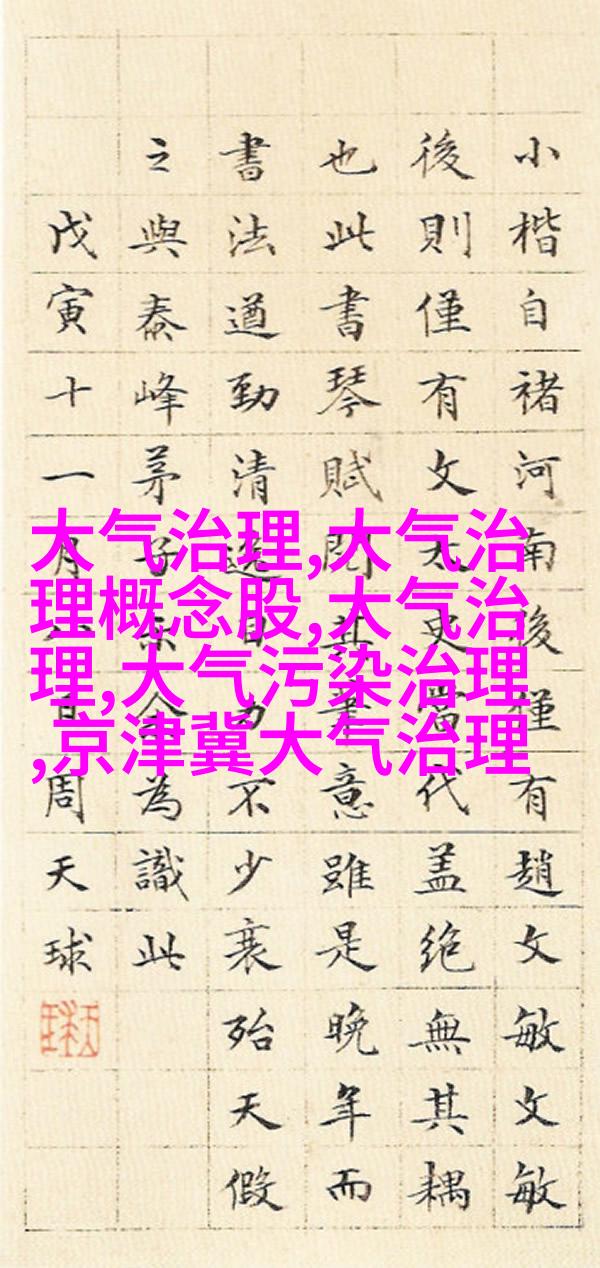 小楷自褚河南後僅有趙文敏文敏
後則僅有文太史當代盖絶無其耦
也此書琴賦閱其筆意雖是晚年而
書法遒勁清逸目力不少衰殆天假
之與泰峰茅子示余為識此
戊寅十一月日周天球
大气治理,大气治
理概念股,大气治
理,大气污染治理
,京津冀大气治理